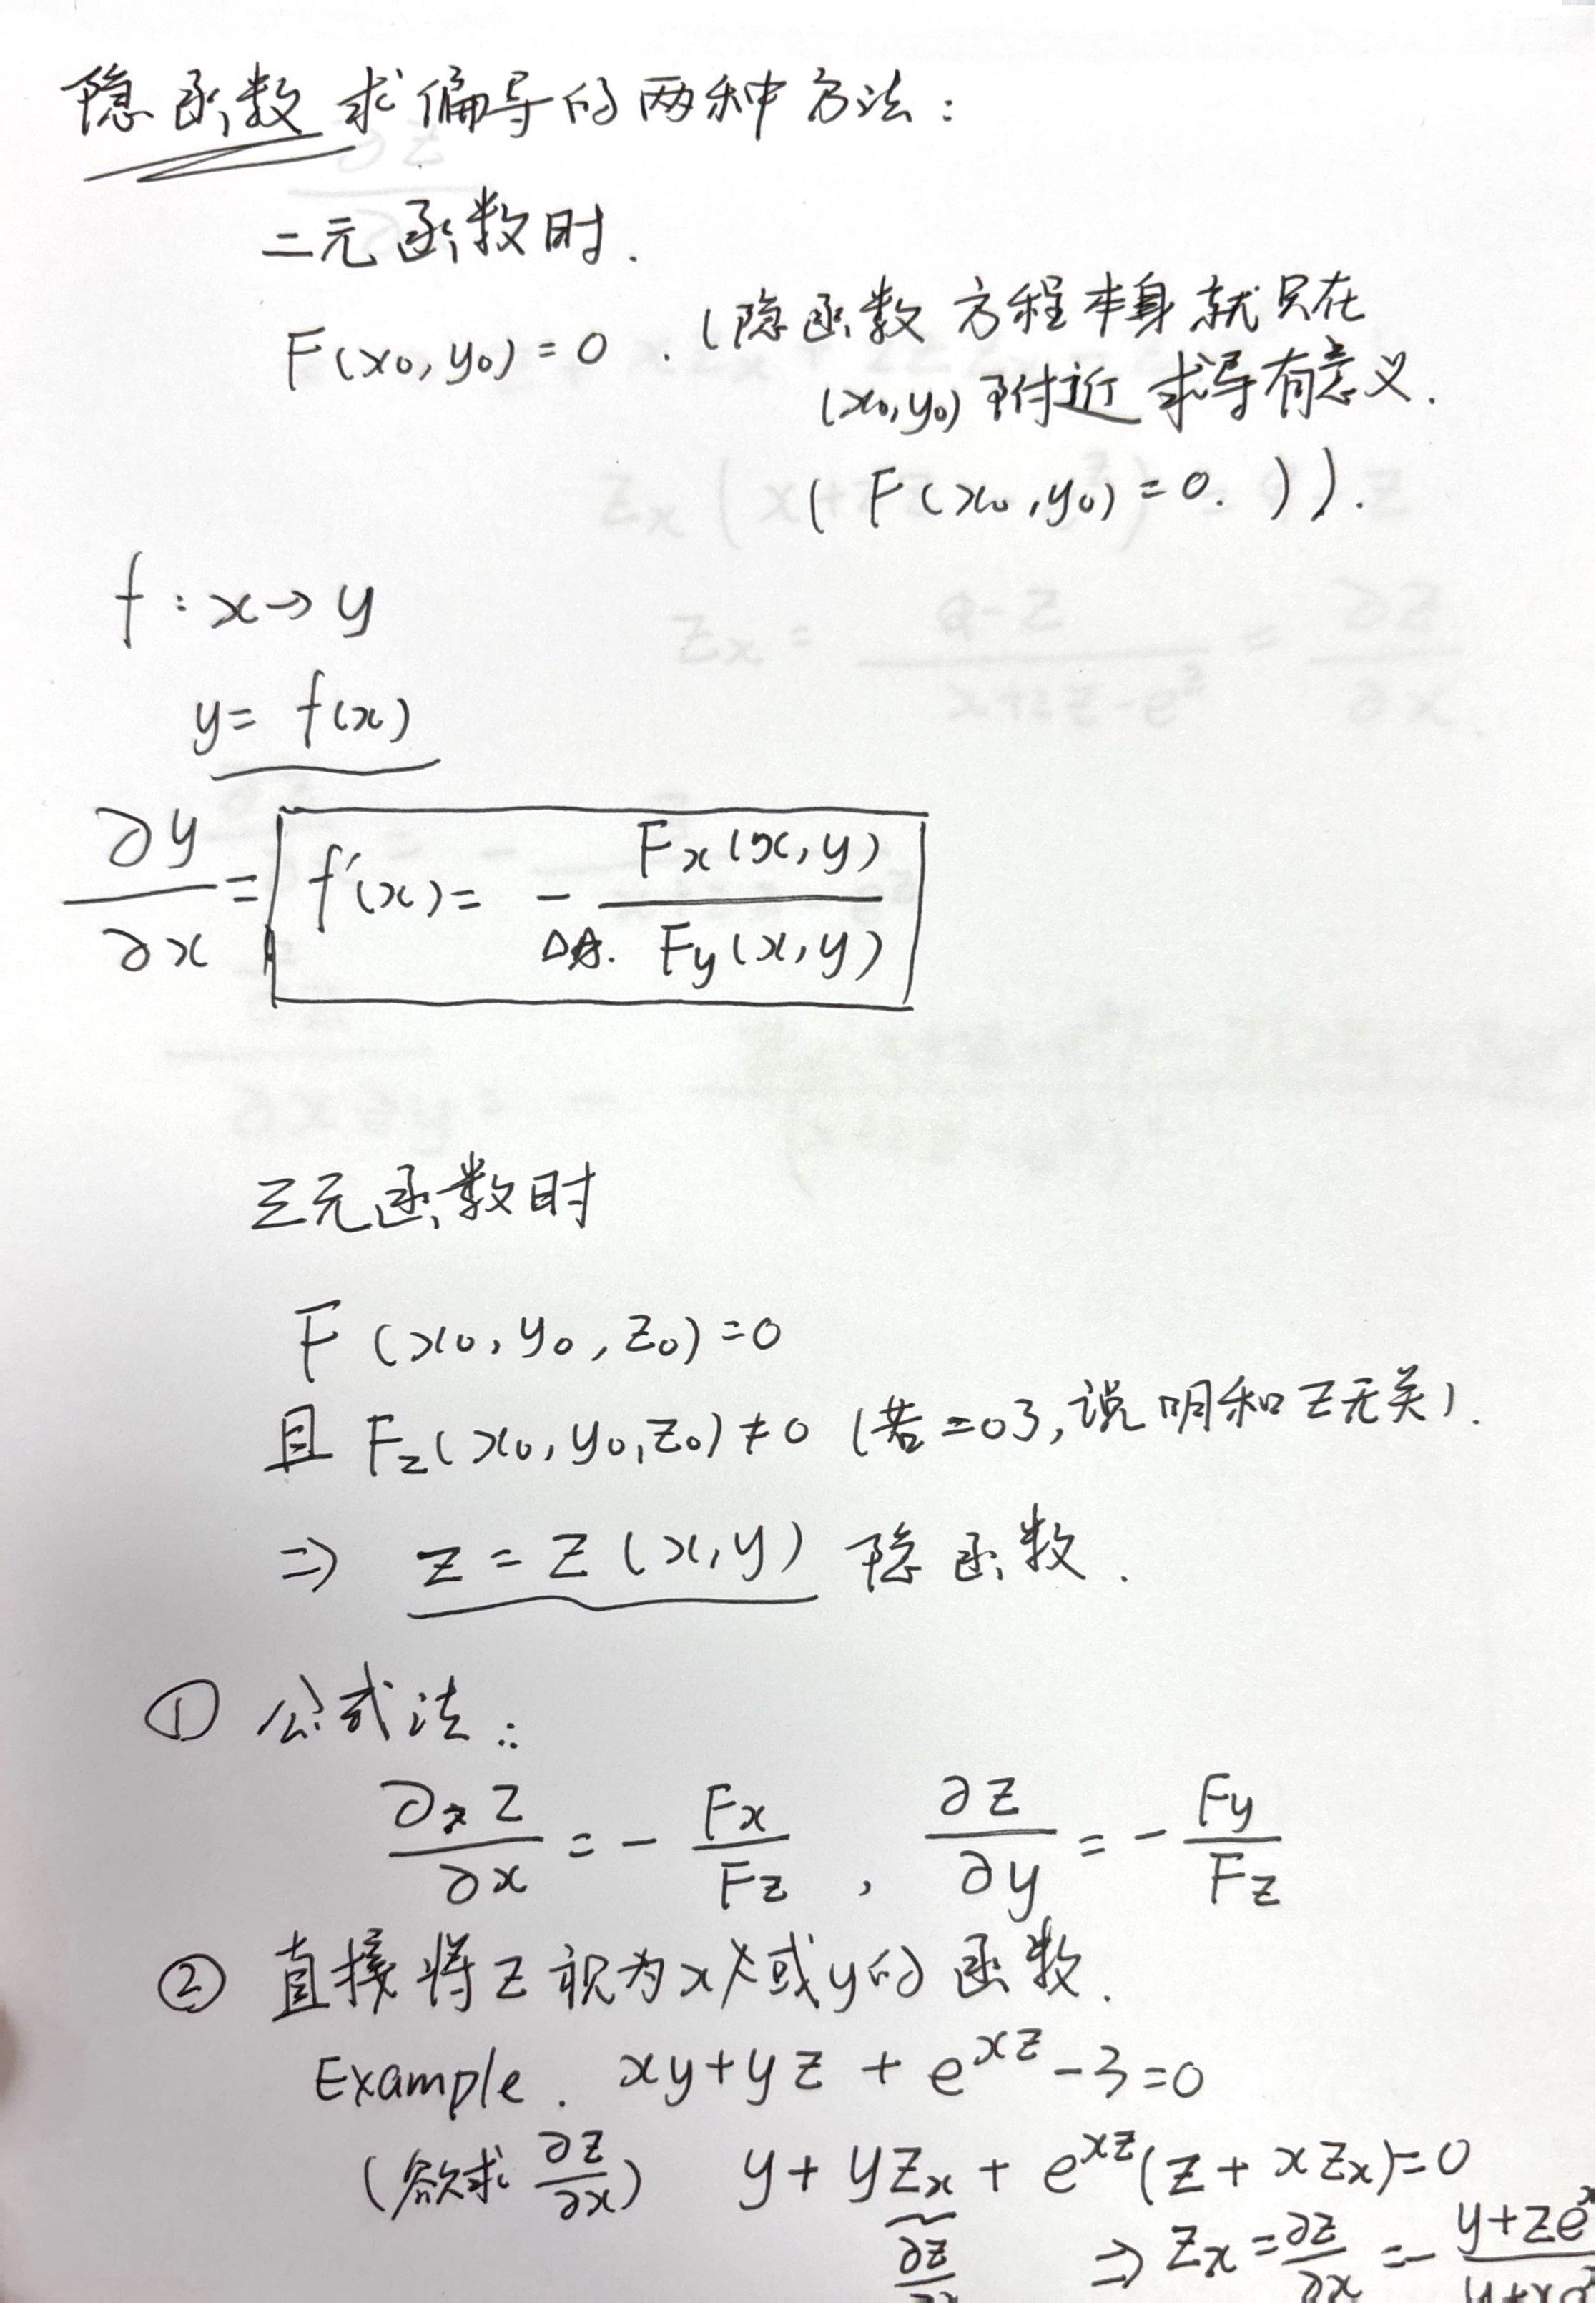 隐函数求偏导的两种方法:
二元函数时.
F(x₀, y₀) = 0 . (隐函数方程本身就只在
(x₀, y₀) 附近求导有意义.
( F(x₀, y₀) = 0. ) ).
f : x → y
y = f(x)
∂y/∂x = f'(x) = - Fx(x, y)/Fy(x, y)
三元函数时
F (x₀, y₀, z₀) = 0
且 Fz(x₀, y₀, z₀) ≠ 0 (若=0了,说明和z无关).
⇒ z = z (x, y) 隐函数.
① 公式法:
∂z/∂x = - Fx/Fz , ∂z/∂y = - Fy/Fz
② 直接将z视为x或y的函数.
Example. xy + yz + e^{xz} - 3 = 0
(欲求 ∂z/∂x) y + yzx + e^{xz}(z + xzx) = 0
∂z
⇒ zx = ∂z/∂x = - y+ze